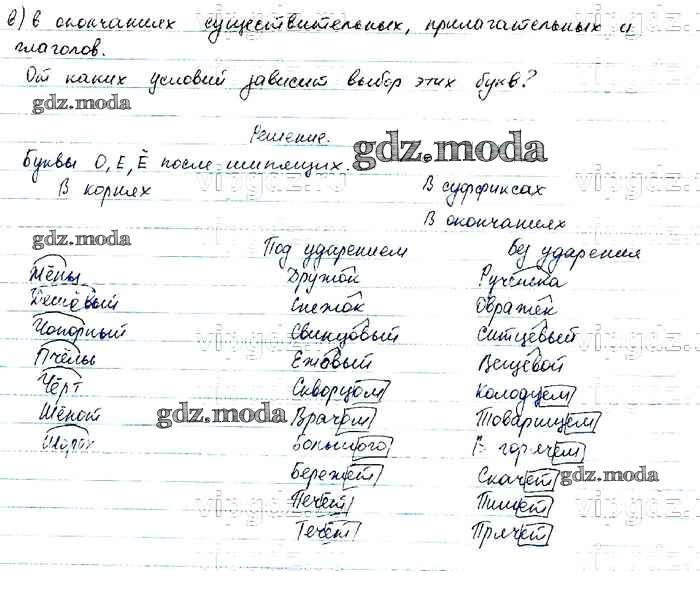 в) в окончаниях существительных, прилагательных и
глаголов.
От каких условий зависит выбор этих букв?
gdz.moda
Решение.
gdz.moda
Буквы О, Е, Ё после шипящих.
В корнях В суффиксах
В окончаниях
gdz.moda
Под ударением Без ударения
Жёны Дружок Рученька
Дешёвый Снежок Овражек
Чопорный Свинцовый Ситцевый
Пчёлы Ежовый Вещевой
Чёрт Скворцом Колодцем
Шёпот Врачом Товарищем
gdz.moda
Шорох Большого В горячем
Бережёт Скачет
gdz.moda
Печёт Пишет
Течёт Прячет